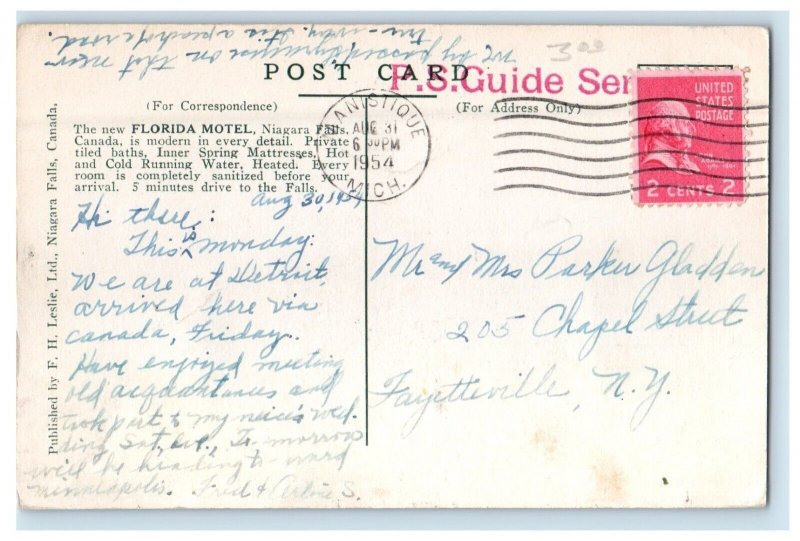 We by passed Syracuse on that new
POST CARD
P.S.Guide Ser
300
(For Correspondence)
(For Address Only)
The new FLORIDA MOTEL, Niagara Falls,
Canada, is modern in every detail. Private
tiled baths, Inner Spring Mattresses, Hot
and Cold Running Water, Heated. Every
room is completely sanitized before your
arrival. 5 minutes drive to the Falls.
MANISTIQUE
AUG 31
6 30 PM
1954
MICH.
UNITED
STATES
POSTAGE
2 CENTS 2
Aug 30, 1954
Hi there:
This is monday.
We are at Detroit,
arrived here via
Canada, Friday.
Have enjoyed meeting
old acquantances and
took part to my niece's wed-
ding Sat, eve., To-morrow
will be heading to ward
minneapolis. Fred & Arline S.
Mr and Mrs Parker Gladden
205 Chapel Street
Fayetteville, N.Y.
Published by F. H. Leslie, Ltd., Niagara Falls, Canada.